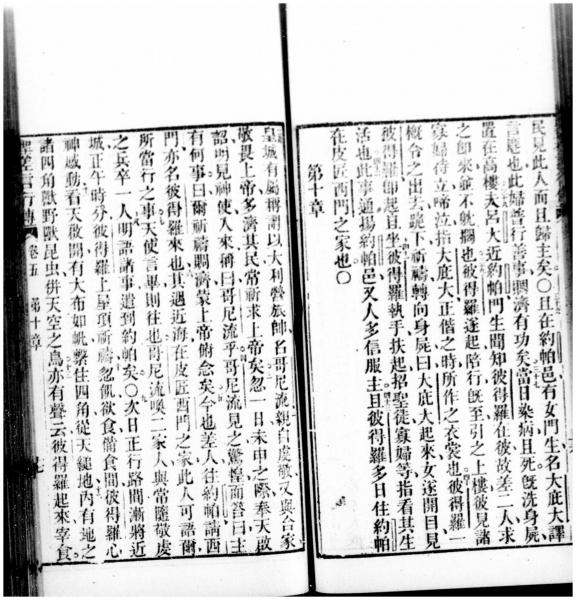 民見此人而且歸主矣〇且在約帕邑有女門生名大庇大譯
言麀也此婦善行善事賙濟有功矣當日染病且死旣洗身屍
置在高樓夫呂大近約帕門生聞知彼得羅在彼故差二人求
之卽來並不躭擱也彼得羅遂起陪行旣至引之上樓彼見諸
寡婦待立啼泣指大庇大正偕之時所作之衣裳也彼得羅一
概令之出去跪下祈禱轉向身屍曰大庇大起來女遂開目見
彼得羅卽起且坐彼得羅執手扶起招聖徒寡婦等指看其生
活也此事通揚約帕邑又人多信服主且彼得羅多日住約帕
在皮匠西門之家也〇
第十章
皇城有屬稱謂以大利營旅帥名哥尼流親自虔敬又與合家
敬畏上帝多濟其民常祈求上帝矣忽一日未申之際奉天啟
詔明見神使入來稱曰哥尼流乎哥尼流見之驚惶而答曰主
有何事曰爾祈禱賙濟蒙上帝俯念矣今也差人往約帕請西
門亦名彼得羅來也其遇近海在皮匠西門之家此人可語爾
所當行之事天使言畢則往也哥尼流喚二家人與常隨敬虔
之兵卒一人明語諸事遣到約帕矣〇次日正行路間漸將近
城正午時分彼得羅上屋頂祈禱忽飢欲食備食間彼得羅心
神感動看天啟開有大布如毯繫住四角從天縋地內有地之
諸四角獸野獸昆虫併天空之鳥亦有聲云彼得羅起來宰食
卷五 第十章